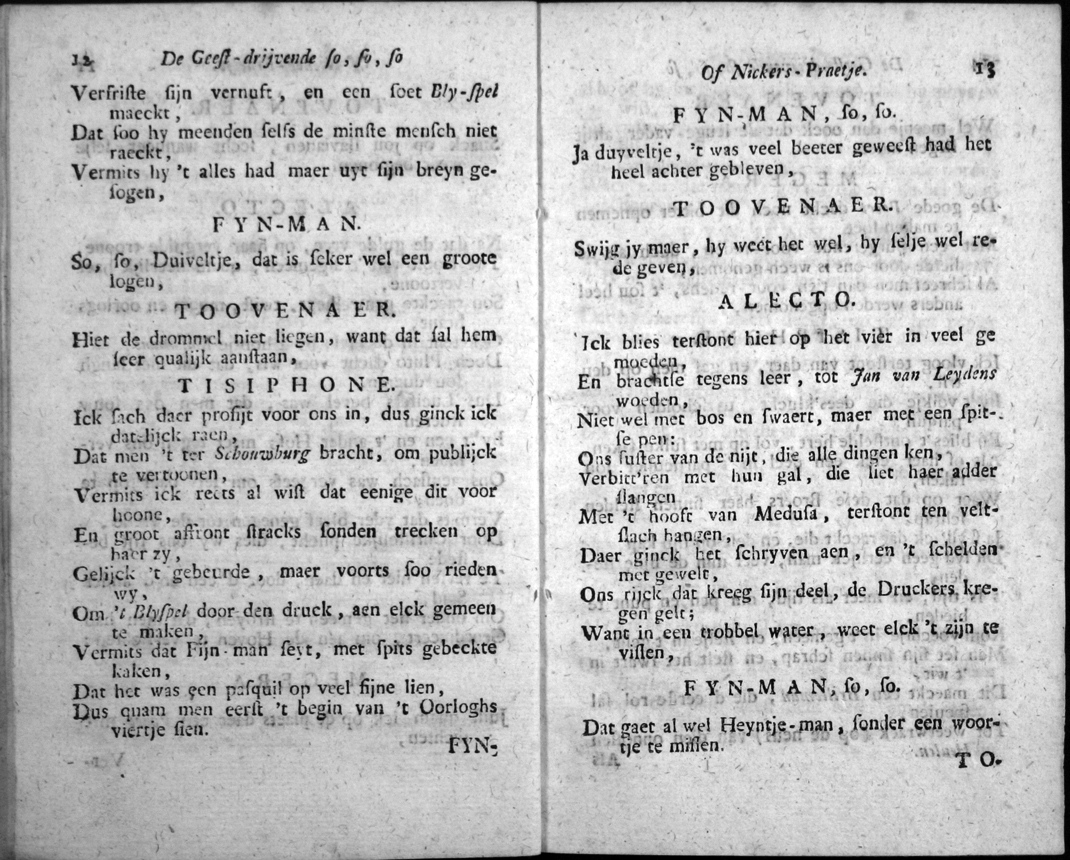 12 De Geeſt-drijvende ſo, ſo, ſo
Verfriſte ſijn vernuft, en een ſoet Bly-ſpel
maeckt,
Dat ſoo hy meenden ſelfs de minſte menſch niet
raeckt,
Vermits hy 't alles had maer uyt ſijn breyn ge-
ſogen,
FYN-MAN.
So, ſo, Duiveltje, dat is ſeker wel een groote
logen,
TOOVENAER.
Hiet de drommel niet liegen, want dat ſal hem
ſeer qualijk aanſtaan,
TISIPHONE.
Ick ſach daer profijt voor ons in, dus ginck ick
datelijck raen,
Dat men 't ter Schouwburg bracht, om publijck
te vertoonen,
Vermits ick reets al wiſt dat eenige dit voor
hoone,
En groot affront ſtracks ſonden trecken op
haer zy,
Gelijck 't gebeurde, maer voorts ſoo rieden
wy,
Om 't Blyſpel door den druck, aen elck gemeen
te maken,
Vermits dat Fijn-man ſeyt, met ſpits gebeckte
kaken,
Dat het was een paſquil op veel fijne lien,
Dus quam men eerſt 't begin van 't Oorloghs
viertje ſien.
FYN-
Of Nickers-Praetje. 13
FYN-MAN, ſo, ſo.
Ja duyveltje, 't was veel beeter geweeſt had het
heel achter gebleven,
TOOVENAER.
Swijg jy maer, hy weet het wel, hy ſelje wel re-
de geven,
ALECTO.
Ick blies terſtont hier op het vier in veel ge
moeden,
En brachtſe tegens leer, tot Jan van Leydens
woeden,
Niet wel met bos en ſwaert, maer met een ſpit-
ſe pen:
Ons ſuſter van de nijt, die alle dingen ken,
Verbitt'ren met hun gal, die liet haer adder
ſlangen
Met 't hooft van Meduſa, terſtont ten velt-
ſlach hangen,
Daer ginck het ſchryven aen, en 't ſchelden
met gewelt,
Ons rijck dat kreeg ſijn deel, de Druckers kre-
gen gelt;
Want in een trobbel water, weet elck 't zijn te
viſſen,
FYN-MAN, ſo, ſo.
Dat gaet al wel Heyntje-man, ſonder een woor-
tje te miſſen.
TO-